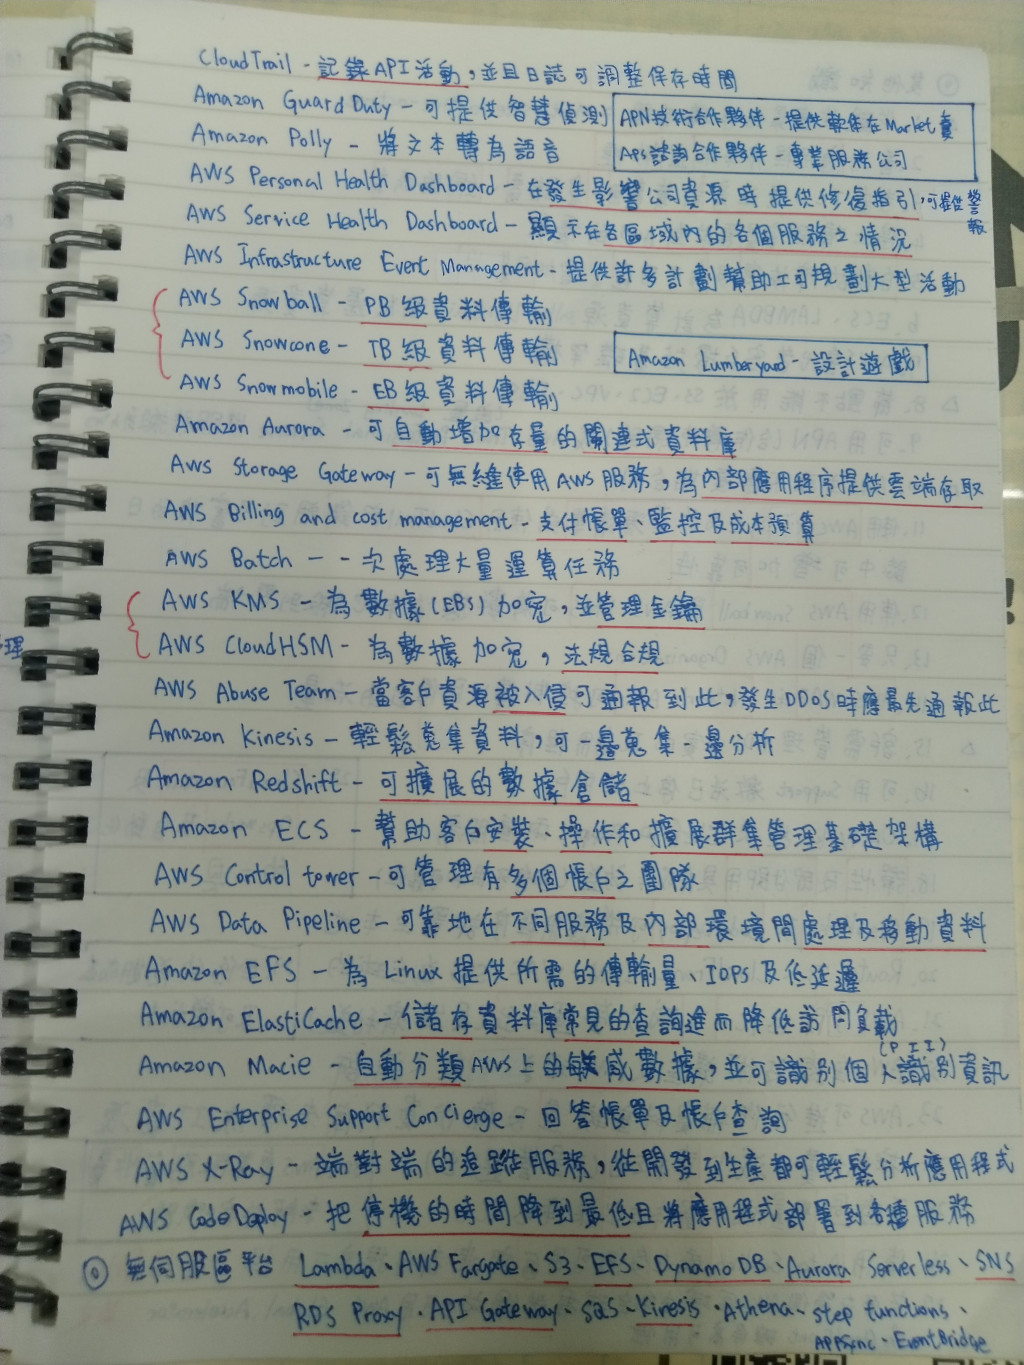 CloudTrail - 記錄API活動，並且日誌可調整保存時間
Amazon GuardDuty - 可提供智慧偵測
APN技術合作夥伴 - 提供軟体在Market賣
Amazon Polly - 將文本轉為語音
APS諮詢合作夥伴 - 專業服務公司
AWS Personal Health Dashboard - 在發生影響公司資源時提供修復指引，可提供警報
AWS Service Health Dashboard - 顯示在各區域內的各個服務之情況
AWS Infrastructure Evert Management - 提供許多計劃幫助工可規劃大型活動
AWS Snowball - PB級資料傳輸
AWS Snowcone - TB級資料傳輸
Amazon Lumberyard - 設計遊戲
AWS Snowmobile - EB級資料傳輸
Amazon Aurora - 可自動增加存量的關連式資料庫
AWS Storage Gateway - 可無縫使用AWS服務，為內部應用程序提供雲端存取
AWS Billing and cost management - 支付帳單、監控及成本預算
AWS Batch - 一次處理大量運算任務
AWS KMS - 為數據(EBS)加密，並管理金鑰
AWS CloudHSM - 為數據加密，法規合規
AWS Abuse Team - 當客戶資源被入侵可通報到此，發生DDoS時應最先通報此
Amazon Kinesis - 輕鬆蒐集資料，可一邊蒐集一邊分析
Amazon Redshift - 可擴展的數據倉儲
Amazon ECS - 幫助客戶安裝、操作和擴展群集管理基礎架構
AWS Control tower - 可管理有多個帳戶之團隊
AWS Data Pipeline - 可靠地在不同服務及內部環境間處理及移動資料
Amazon EFS - 為Linux提供所需的傳輸量、IOPS及低延遲
Amazon ElastiCache - 儲存資料庫常見的查詢進而降低訪問負載
(PII)
Amazon Macie - 自動分類AWS上的敏感數據，並可識別個人識別資訊
AWS Enterprise Support Concierge - 回答帳單及帳戶查詢
AWS X-Ray - 端對端的追蹤服務，從開發到生產都可輕鬆分析應用程式
AWS CodeDeploy - 把停機的時間降到最低且將應用程式部署到各種服務
◎ 無伺服區平台 Lambda、AWS Fargate、S3、EFS、DynamoDB、Aurora Serverless、SNS
RDS Proxy、API Gateway、SQS、Kinesis、Athena、step functions、
APPSync、EventBridge
理